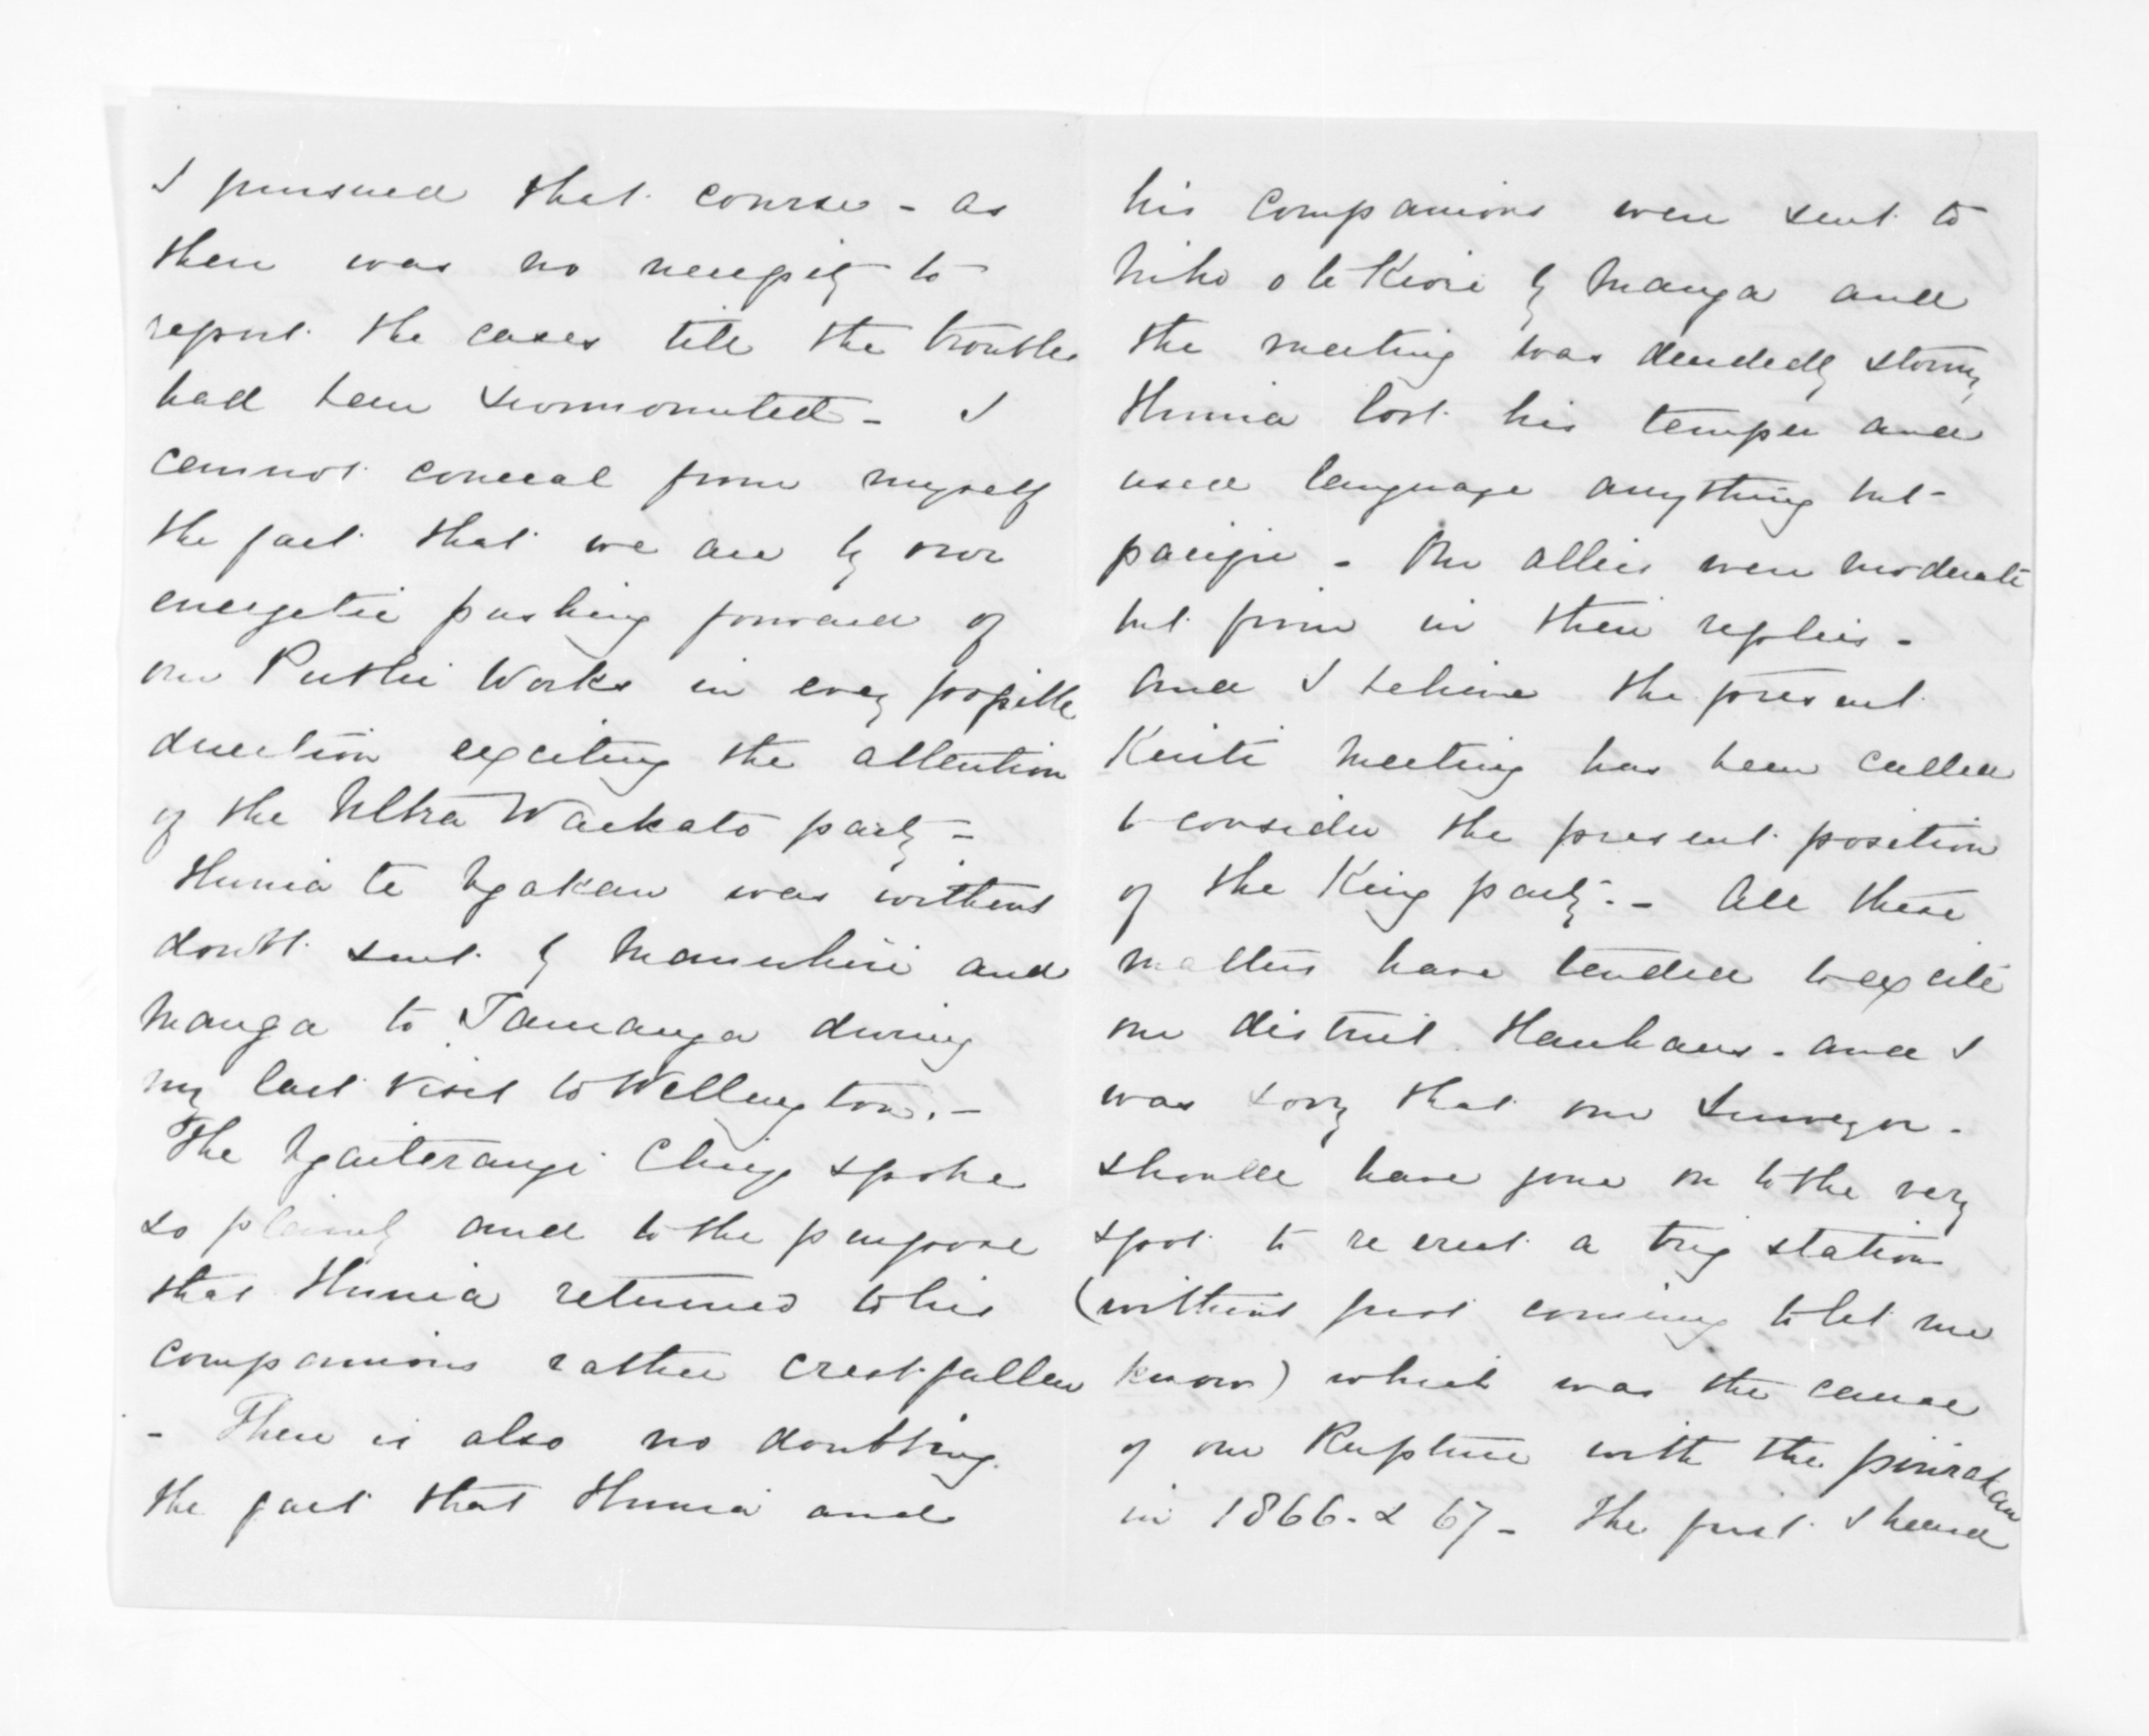 I pursued that course - as
there was no necessity to
report the cases till the troubles
had been surmounted - I
cannot conceal from myself
the fact that we are by our
energetic pushing forward of
our Public Works in every possible
direction exciting the attention
of the Ultra Waikato party -
Hunia te Ngakau was without
doubt sent by Manuhiri and
Manga to Tauranga during
my last visit to Wellington. -
The Ngaiterangi Chiefs spoke
so plainly and to the purpose
that Hunia returned to his
companions rather crestfallen
- There is also no doubting
the fact that Hunia and
his companions were sent to
by Manga and
the meeting was decidedly stormy
Hunia lost his temper and
used language anything but
pacific - Our allies were moderate
but firm in their replies -
and I believe the present
Kuiti Meeting has been called
to consider the present position
of the King party. - All these
matters have tended to excite
our district Hauhaus - and I
was sorry that our Surveyor -
should have gone on to the very
spot to re erect a trig station
(without first coming to let me
know) which was the cause
of our Rupture with the pirirakau
in 1866. & 67 - The first I heard